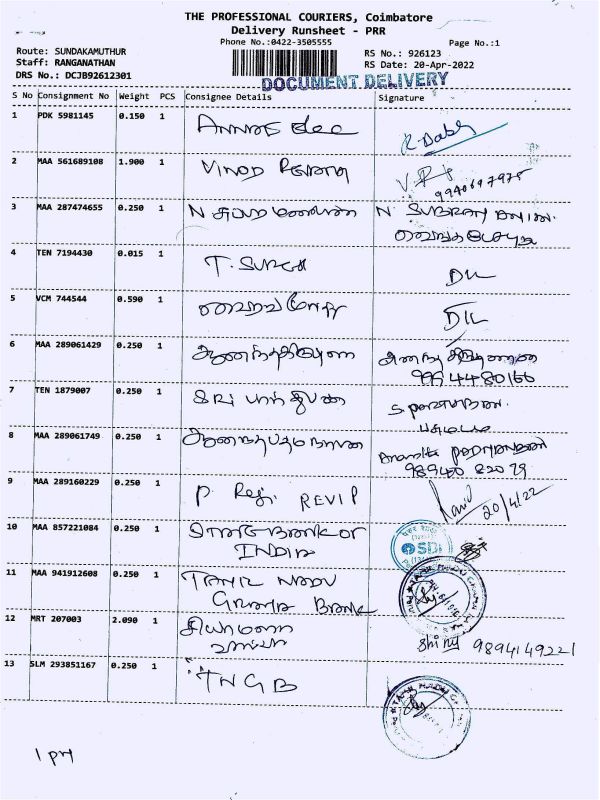 THE PROFESSIONAL COURIERS, Coimbatore
Delivery Runsheet - PRR
Phone No.:0422-3505555
Page No.:1
Route: SUNDAKAMUTHUR
Staff: RANGANATHAN
DRS No.: DCJB92612301
RS No.: 926123
RS Date: 20-Apr-2022
DOCUMENT DELIVERY
S No Consignment No Weight PCS Consignee Details Signature
1 PDK 5981145 0.150 1
2 MAA 561689108 1.900 1 VINOD
9940697975
3 MAA 287474655 0.250 1 N சுப்ரமணியன் N SUBRAMANIAN.
4 TEN 7194430 0.015 1 T. SURESH DLL
5 VCM 744544 0.590 1 DLL
6 MAA 289061429 0.250 1
9994480166
7 TEN 1879007 0.250 1 SRI பார்த்திபன் S PARTHIBAN.
8 MAA 289061749 0.250 1 ஆனந்தபத்மநாபன் Anantha PADMANABAN
989480 82079
9 MAA 289160229 0.250 1 P. Regi REVI P 20/4/22
10 MAA 857221084 0.250 1 STATE BANK OF
INDIA
SBI
11 MAA 941912608 0.250 1 TAMIL NADU
GRAMA BANK
12 MRT 207003 2.090 1 சியாமளா
Shiny 9894149221
13 SLM 293851167 0.250 1 TNGB
1 PM